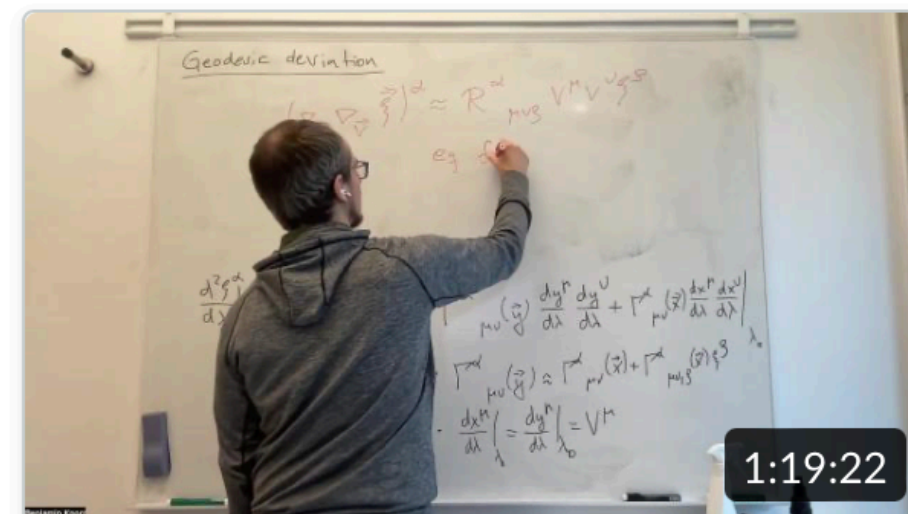 Geodesic deviation
∇_V⃗ ξ⃗ )^α ≈ R^α_μνβ V^μ V^ν ξ^β
eq
d²ξ^α
dλ
Γ^α_μν(y⃗) dy^μ/dλ dy^ν/dλ + Γ^α_μν(x⃗) dx^μ/dλ dx^ν/dλ |_λ₀
Γ^α_μν(y⃗) ≈ Γ^α_μν(x⃗) + Γ^α_μν,β(x⃗) ξ^β
· dx^μ/dλ |_λ₀ = dy^μ/dλ |_λ₀ = V^μ
1:19:22